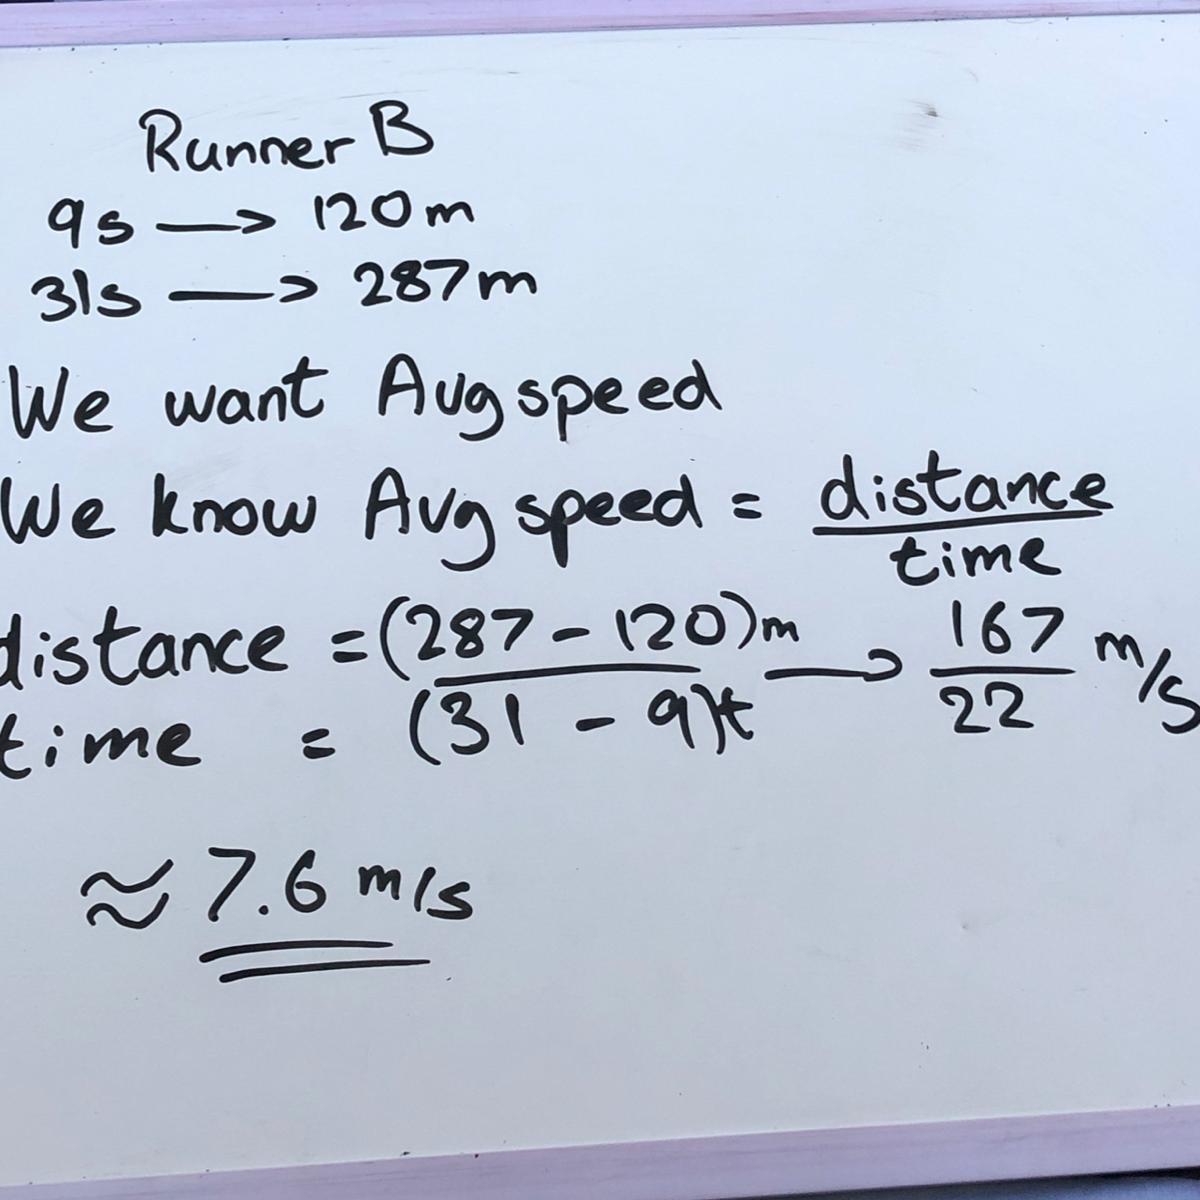 Runner B
9s → 120m
31s → 287m
We want Avg speed
We know Avg speed = distance / time
distance = (287 - 120)m → 167 m/s
time = (31 - 9)t 22
≈ 7.6 m/s